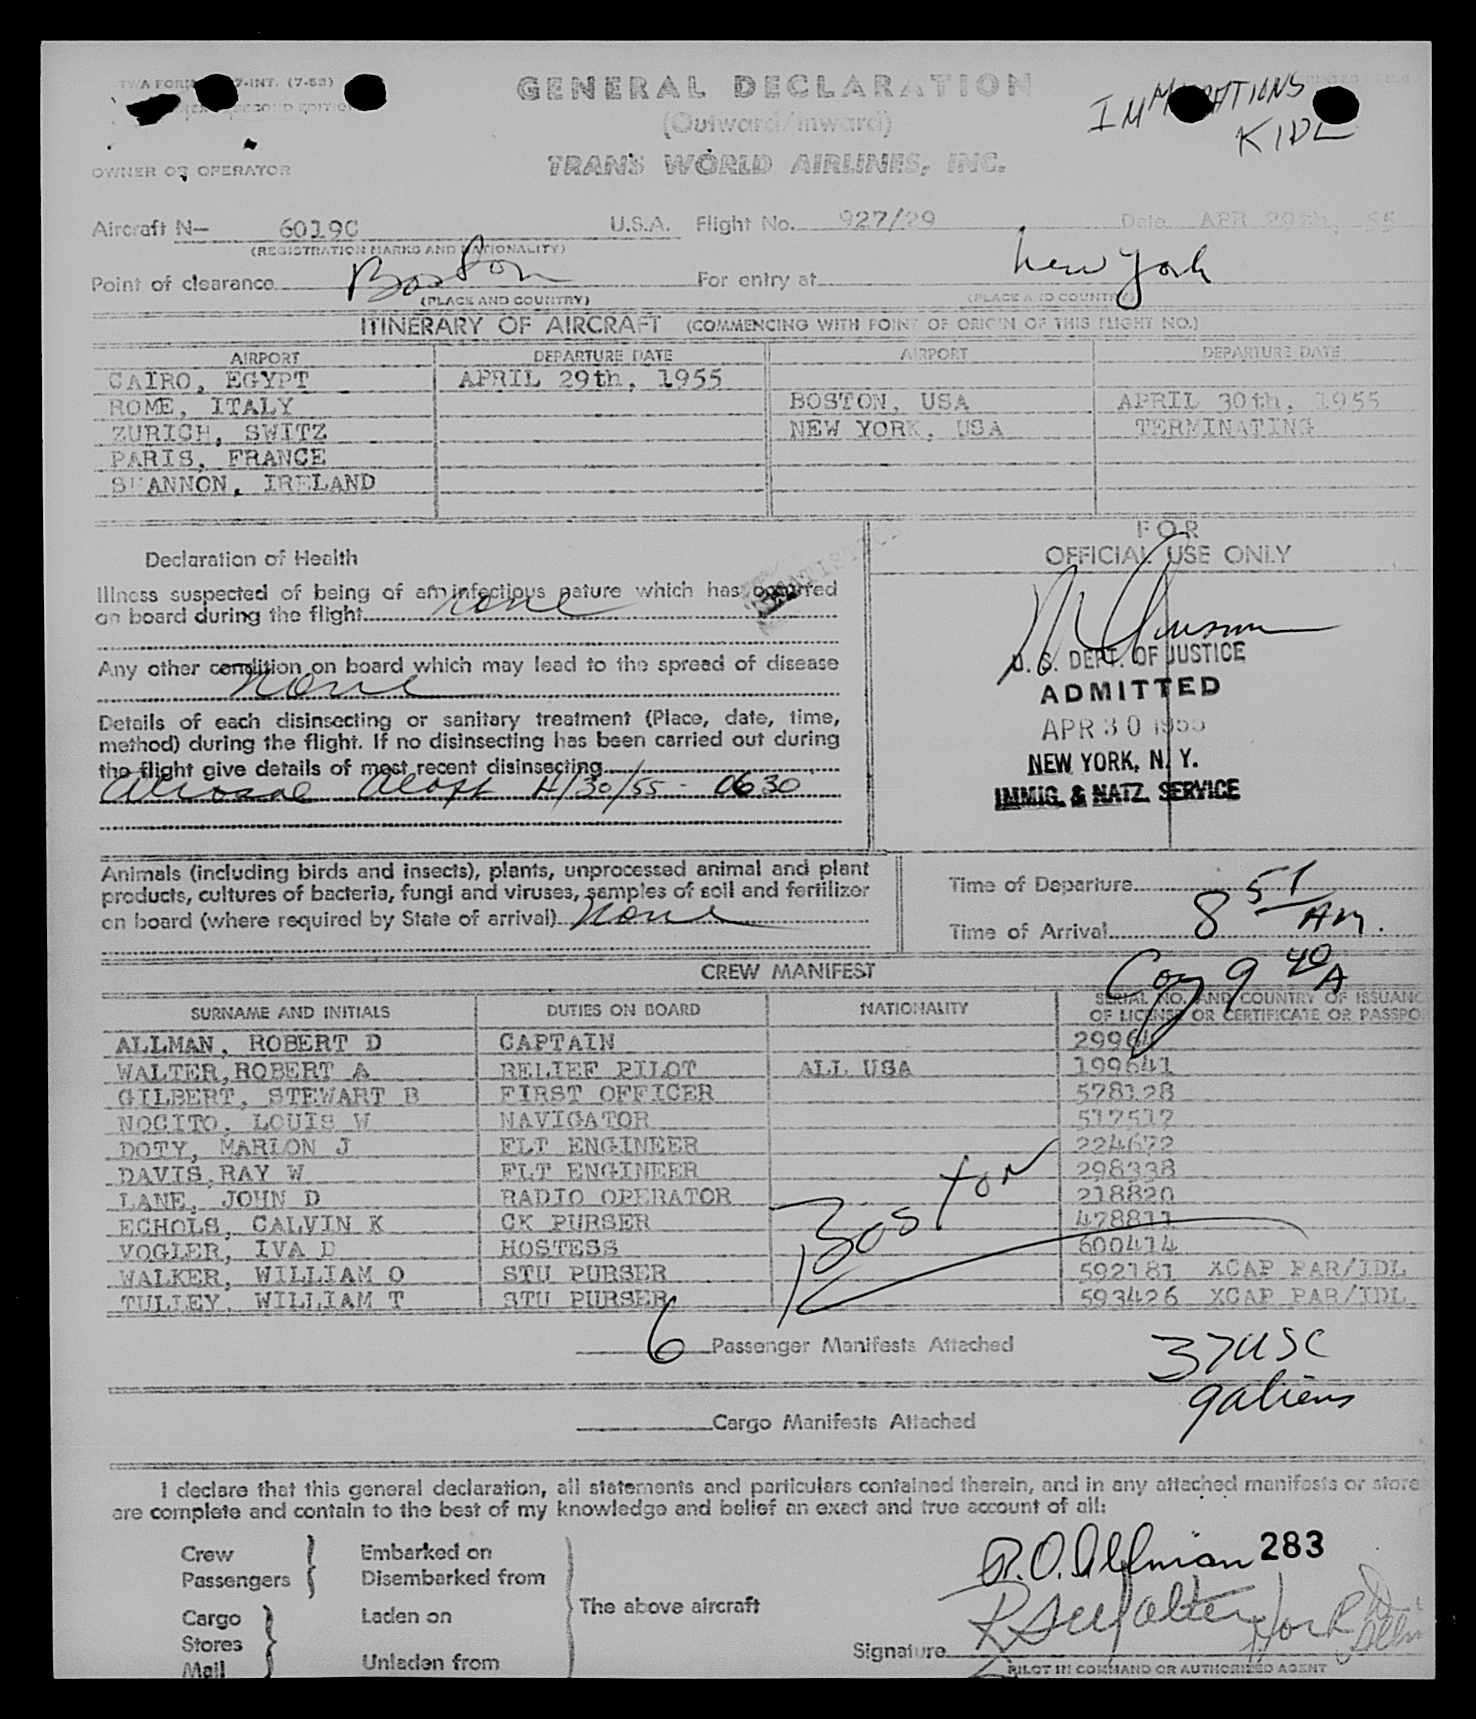 GENERAL DECLARATION
(Outward/Inward)
TRANS WORLD AIRLINES, INC.
KIDL
OWNER OR OPERATOR
Aircraft N— 6019C U.S.A. Flight No. 927/29 Date APR 29th, 55
(REGISTRATION MARKS AND NATIONALITY)
Point of clearance Boston For entry at New York
(PLACE AND COUNTRY) (PLACE AND COUNTRY)
ITINERARY OF AIRCRAFT (COMMENCING WITH POINT OF ORIGIN OF THIS FLIGHT NO.)
AIRPORT DEPARTURE DATE AIRPORT DEPARTURE DATE
CAIRO, EGYPT APRIL 29th, 1955
ROME, ITALY BOSTON, USA APRIL 30th, 1955
ZURICH, SWITZ NEW YORK, USA TERMINATING
PARIS, FRANCE
SHANNON, IRELAND
FOR
OFFICIAL USE ONLY
Declaration of Health
Illness suspected of being of an infectious nature which has occurred
on board during the flight none
Any other condition on board which may lead to the spread of disease
none
Details of each disinsecting or sanitary treatment (Place, date, time,
method) during the flight. If no disinsecting has been carried out during
the flight give details of most recent disinsecting
Aerosol Aloft 4/30/55 - 0630
U. S. DEPT. OF JUSTICE
ADMITTED
APR 30 1955
NEW YORK, N. Y.
IMMIG. & NATZ. SERVICE
Animals (including birds and insects), plants, unprocessed animal and plant
products, cultures of bacteria, fungi and viruses, samples of soil and fertilizer
on board (where required by State of arrival) none
Time of Departure
Time of Arrival 8 51 AM.
9 40 A
CREW MANIFEST
SURNAME AND INITIALS DUTIES ON BOARD NATIONALITY SERIAL NO. AND COUNTRY OF ISSUANC
OF LICENSE OR CERTIFICATE OR PASSPO
ALLMAN, ROBERT D CAPTAIN
WALTER, ROBERT A RELIEF PILOT ALL USA 199641
GILBERT, STEWART B FIRST OFFICER 578128
NOCITO, LOUIS W NAVIGATOR 517517
DOTY, MARLON J FLT ENGINEER 224672
DAVIS, RAY W FLT ENGINEER 298338
LANE, JOHN D RADIO OPERATOR 218820
ECHOLS, CALVIN K CK PURSER 478811
VOGLER, IVA D HOSTESS 600414
WALKER, WILLIAM O STU PURSER 592181 XCAP PAR/IDL
TULLEY, WILLIAM T STU PURSER 593426 XCAP PAR/IDL
Boston
6 Passenger Manifests Attached
37 USC
9 aliens
Cargo Manifests Attached
I declare that this general declaration, all statements and particulars contained therein, and in any attached manifests or store
are complete and contain to the best of my knowledge and belief an exact and true account of all:
Crew
Passengers
Embarked on
Disembarked from
Cargo
Stores
Mail
Laden on
Unladen from
The above aircraft
R.D. Allman 283
Signature
PILOT IN COMMAND OR AUTHORIZED AGENT